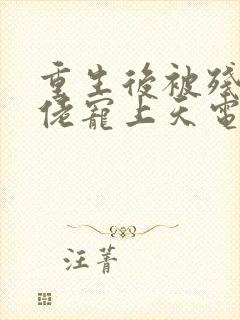 重生後被殘
佬寵上天電
汪菁